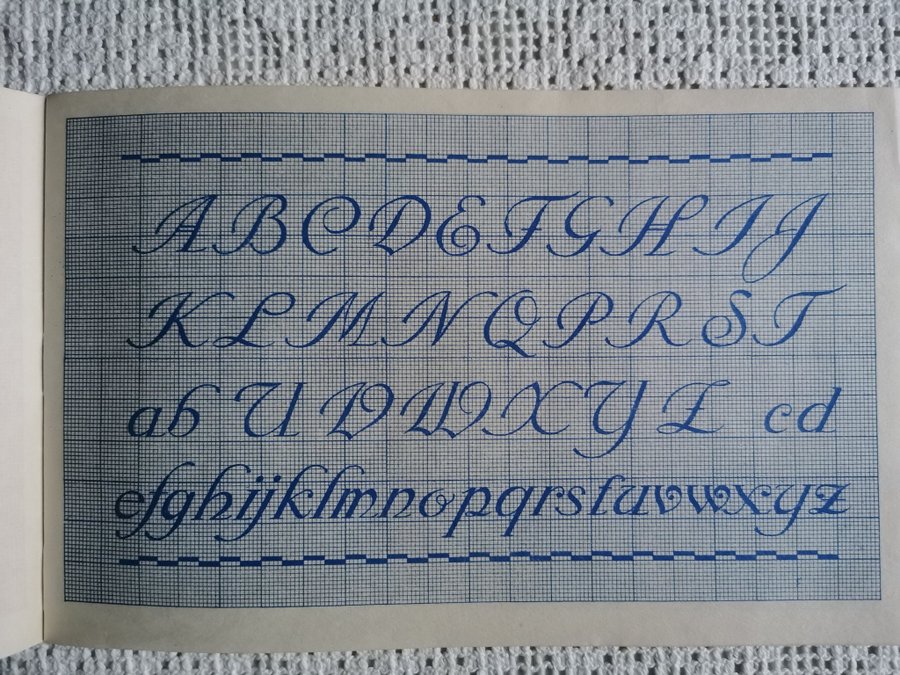 ABCDEFGHIJ
KLMNQPRST
ab UVWXYZ cd
efghijklmnopqrstuvwxyz